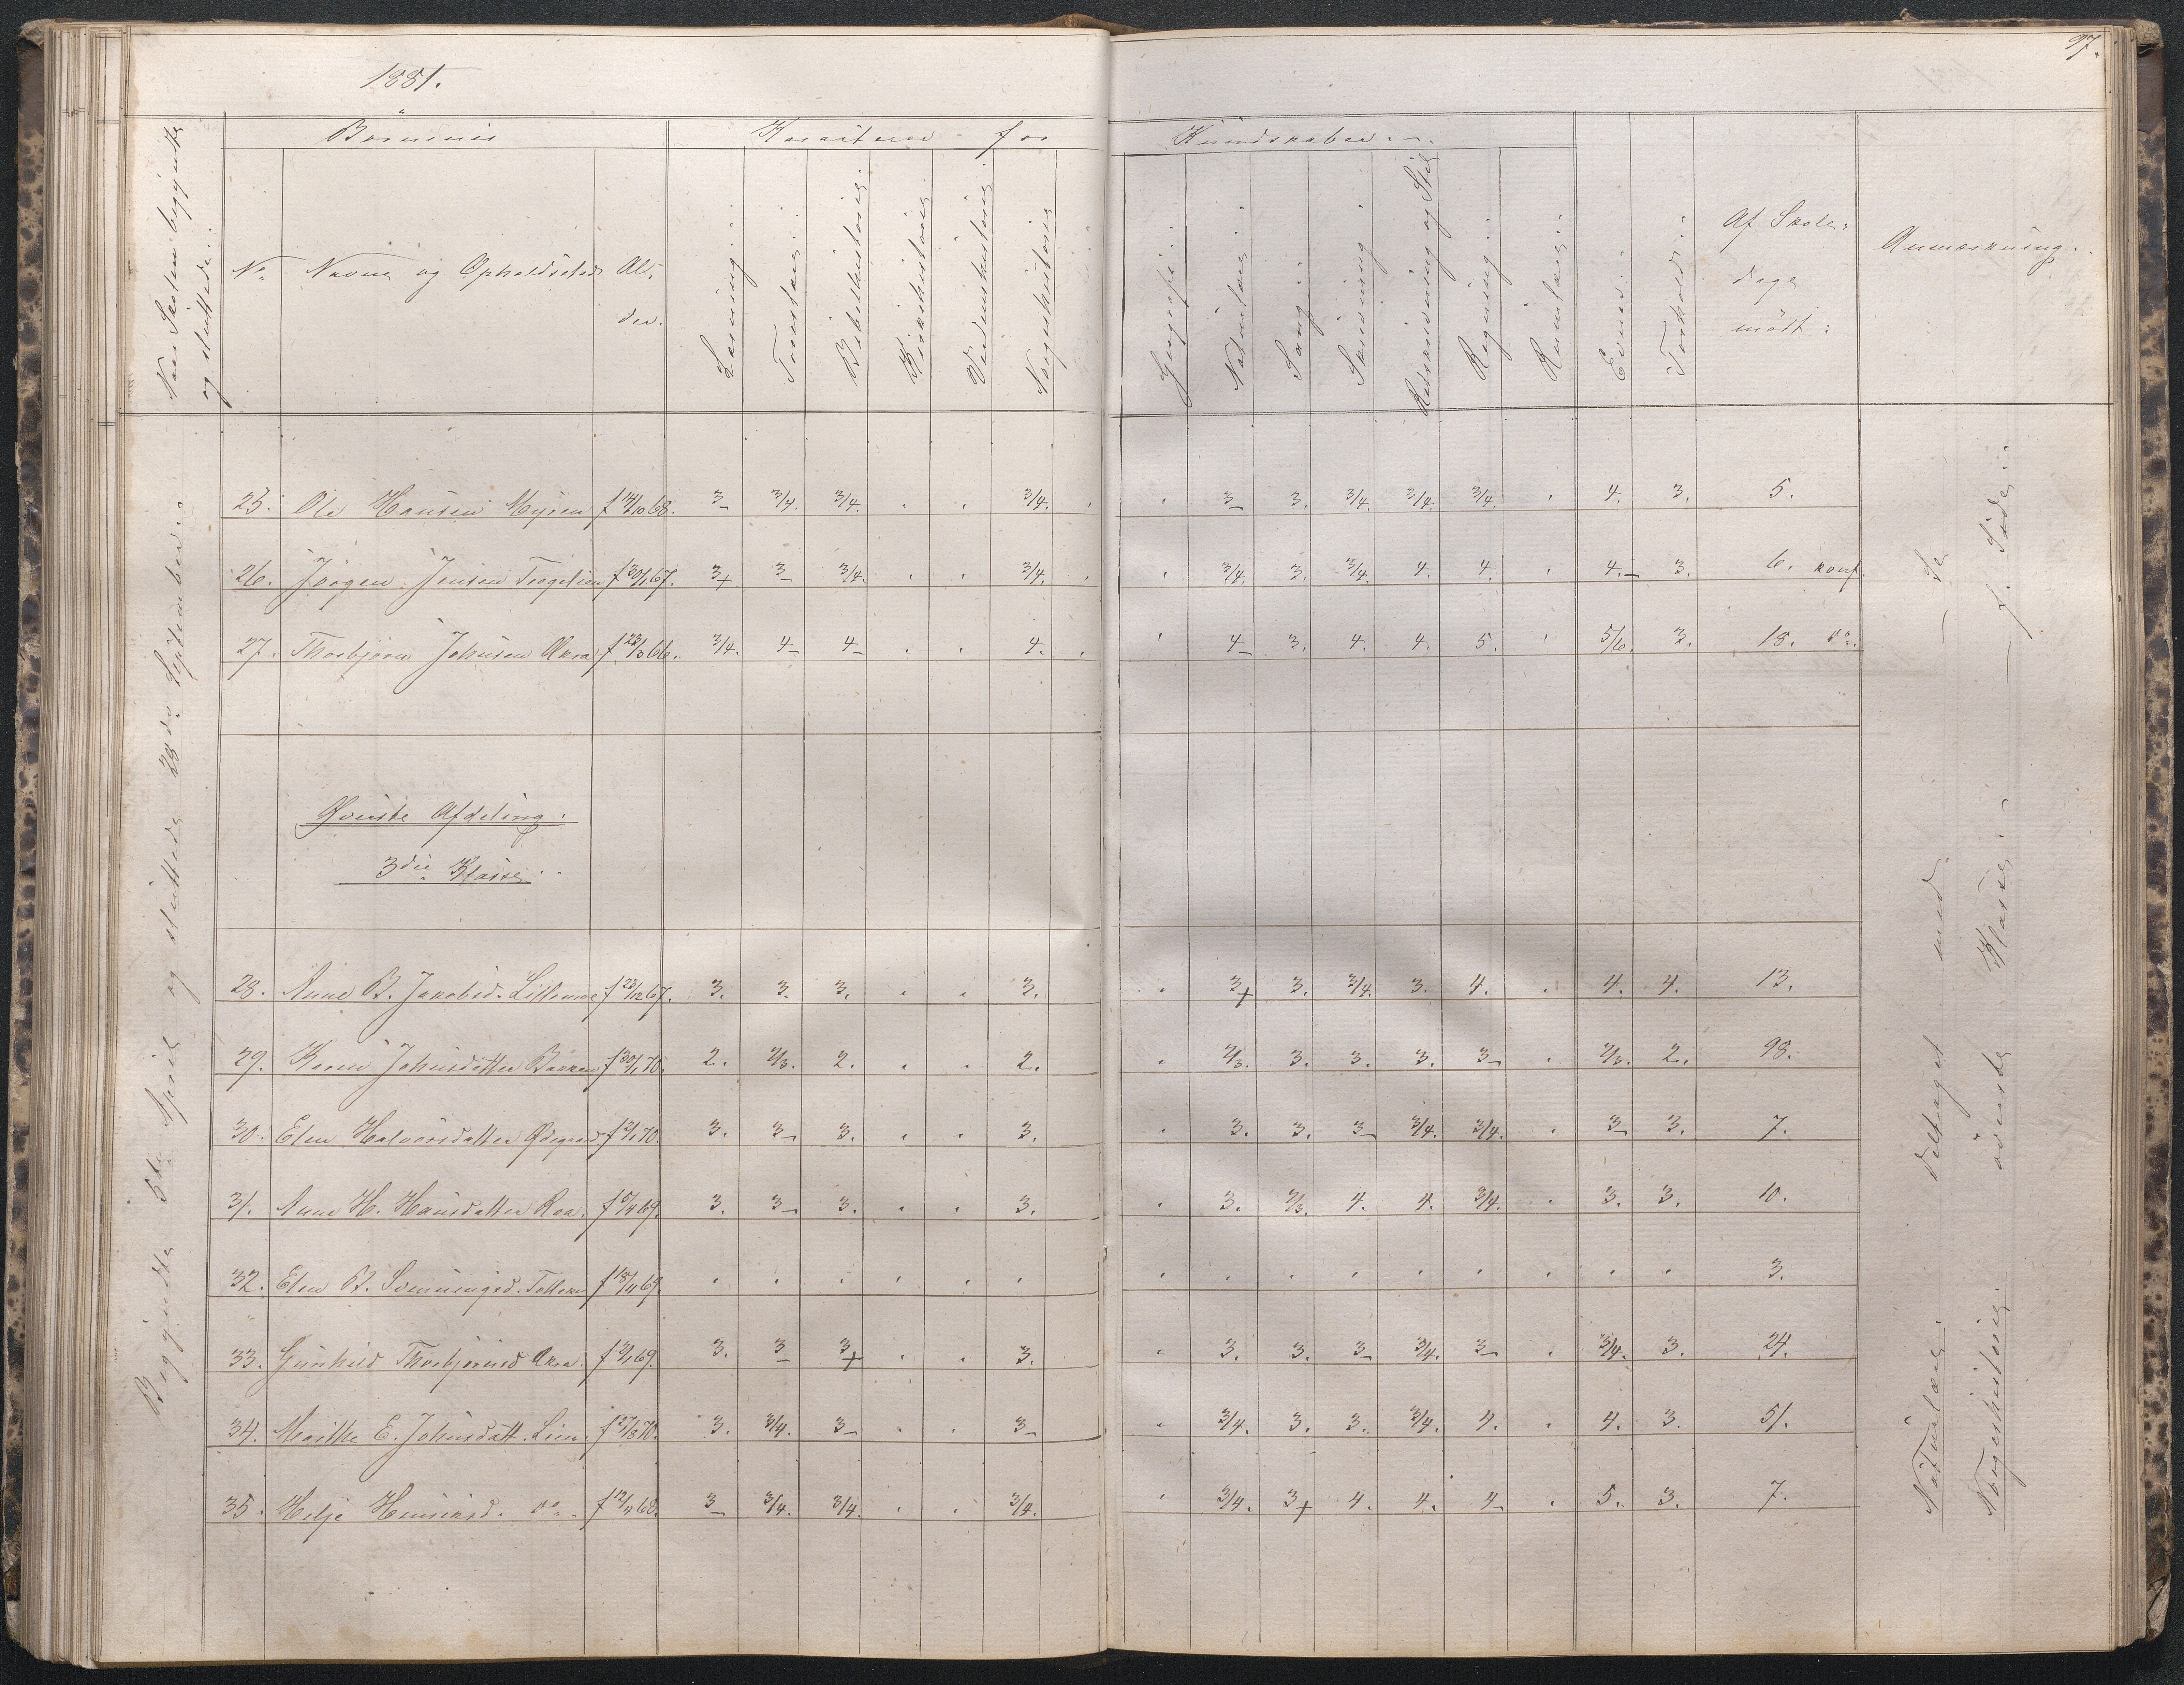 97.
1881.
Børnenes Karakterer for Kundskaber.
Naar Skolen begyndte og sluttede.
No Navne og Opholdssted Alder.
Læsning.
Troeslære.
Bibelhistorie.
Kirkehistorie.
Verdenshistorie.
Norgeshistorie
Geografi.
Naturlære.
Sang.
Skrivning
Retskrivning og Stil
Regning.
Rumlære.
Evner.
Forhold.
Af Skoledage mødt:
Anmærkning.
25. Ole Hansen Myren f 14/10 68. 3- 3/4. 3/4. . . 3/4. . . 3- 3. 3/4. 3/4. 3/4. . 4. 3. 5.
26. Jørgen Jensen f 30/1 67. 3+ 3- 3/4. . . 3/4. . . 3/4. 3. 3/4. 4. 4. . 4.- 3. 6. konf.
27. Thorbjørn Johnsen Akra f 23/3 66. 3/4. 4- 4- . . 4. . . 4- 3. 4. 4. 5. . 5/6. 3. 15. do.
Øverste Afdeling.
3die Klasse.
28. Anne B. Jakobsd. Lillemoe f 23/12 67. 3. 3. 3. . . 3. . 3+ 3. 3/4. 3. 4. . 4. 4. 13.
29. Karen Johnsdatter Bakken f 30/1 70. 2. 2/3. 2. . . 2. . 2/3. 3. 3. 3. 3- . 2/3. 2. 98.
30. Elen Halvorsdatter Ødegaard f 2/1 70. 3. 3- 3. . . 3. . 3. 3. 3- 3/4. 3/4. . 3- 3. 7.
31. Anne H. Hansdatter Roa. f 5/4 69. 3. 3- 3. . . 3. . 3. 2/3. 4. 4. 3/4. . 3. 3. 10.
32. Elen B. f 18/11 69. . . . . . . . . . . . . . . . 3.
33. Gunhild Thorbjørnsd Akra. f 3/1 69. 3. 3- 3+ . . 3. . 3. 3. 3- 3/4. 3- . 3/4. 3. 24.
34. Marthe E. Johnsdatt. Lien. f 27/8 70. 3. 3/4. 3- . . 3- . 3/4. 3. 3. 3/4. 4. . 4. 3. 51.
35. Helje Henriksd. do. f 12/11 68. 3- 3/4. 3/4. . . 3/4. . 3/4. 3+ 4. 4. 4- . 5. 3. 7.
Begyndte 5te April og sluttede 28de September.
Naturlære. deltaget med
Norgeshistorie. øverste Klasse. f. Side.